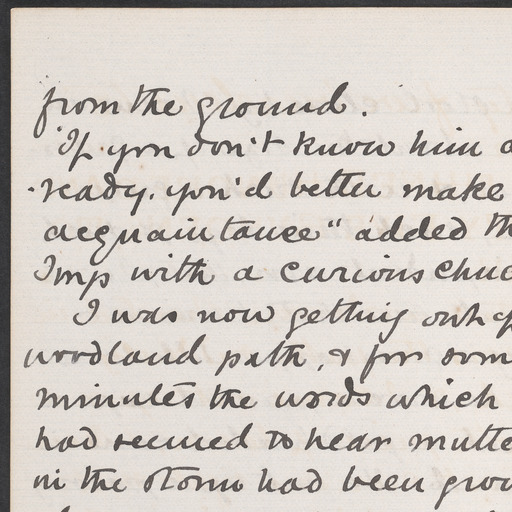 from the ground.
"If you don't know him a
-ready, you'd better make
acquaintance" added th
Imp with a curious chuc
I was now getting out of
woodland path, & for som
minutes the words which
had seemed to hear mutte
in the storm had been grow